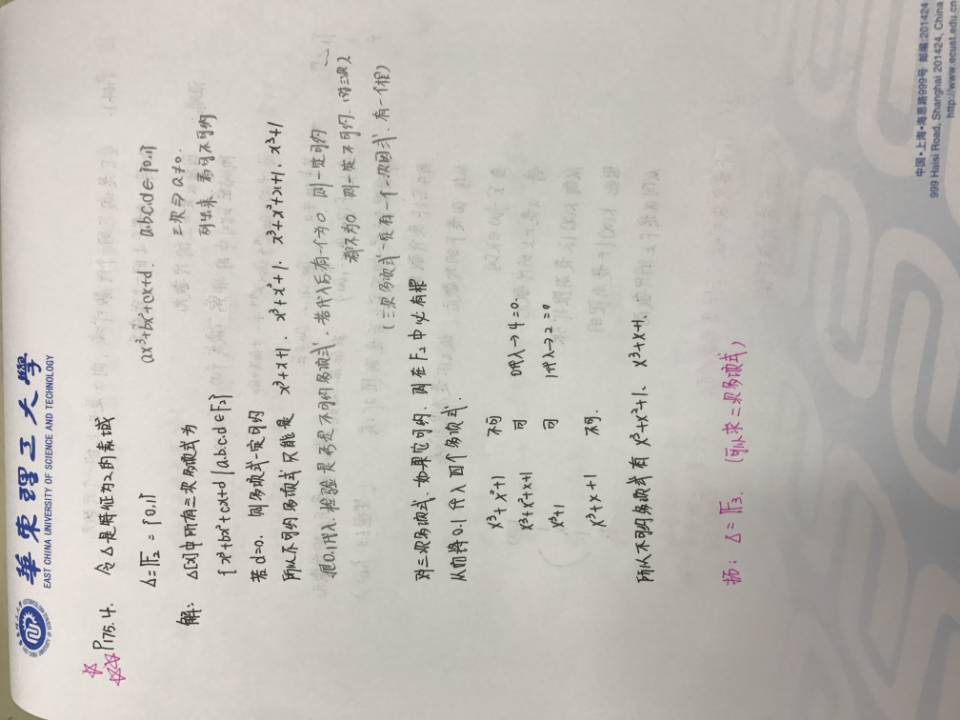 華東理工大學
EAST CHINA UNIVERSITY OF SCIENCE AND TECHNOLOGY
P175.4. 令Δ是特征为2的素域
Δ=F₂={0,1} ax³+bx²+cx+d. a.b.c.d∈{0,1}
三次⇒a≠0.
解: Δ[x]中所有三次多项式为 列出来 看可不可约
{x³+bx²+cx+d|a.b.c.d∈F₂}
若d=0. 则多项式一定可约
所以不可约多项式只能是 x³+x+1、x³+x²+1. x³+x²+x+1、x³+1
把0.1代入.检验是否是不可约多项式.若代入后有一个为0 则一定可约
都不为0 则一定不可约.(对三次)
(三次多项式一定有一个一次因式.有一个根)
对三次多项式.如果它可约.则在F₂中必有根
从而将0.1代入四个多项式.
x³+x²+1 不可
x³+x²+x+1 可 代入→4=0.
x³+1 可 1代入→2=0
x³+x+1 不可.
所以不可约多项式有 x³+x²+1、x³+x+1.
拓: Δ=F₃. (可以求二次多项式)
中国·上海·海思路999号 邮编:201424
999 Haisi Road, Shanghai 201424, China
http://www.ecust.edu.cn